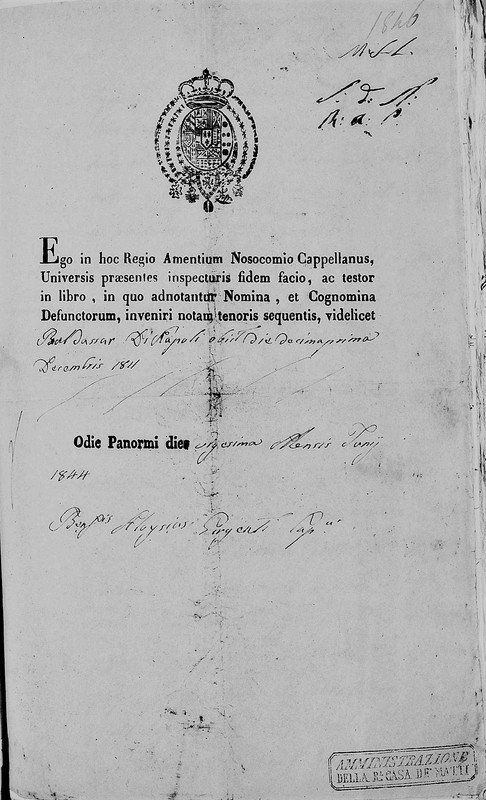 1846
M. S. L.
S: d: N:
R: a: p:
Ego in hoc Regio Amentium Nosocomio Cappellanus,
Universis præsentes inspecturis fidem facio, ac testor
in libro, in quo adnotantur Nomina, et Cognomina
Defunctorum, inveniri notam tenoris sequentis, videlicet
Baldassar Di Napoli obiit die decimaprima
Decembris 1811
Odie Panormi die vigesima Mensis Junij
1844
Aloysius Girgenti Cap.
AMMINISTRAZIONE
DELLA R. CASA DE' MATTI